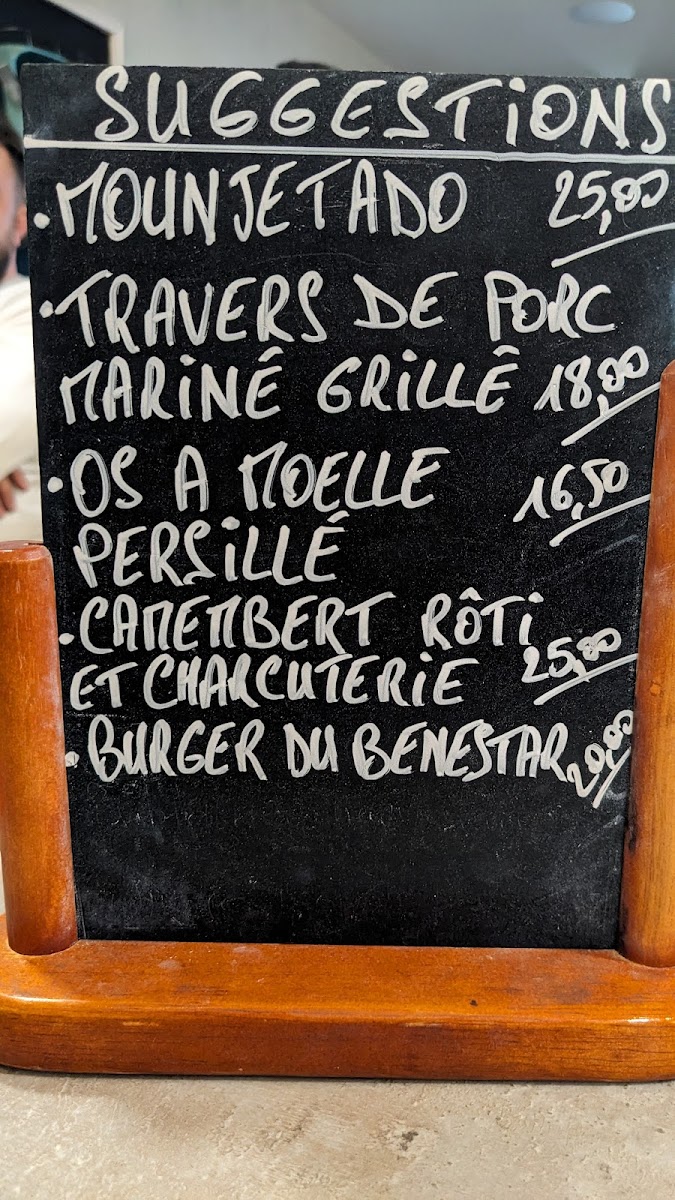 SUGGESTIONS
• MOUNJETADO 25,00
• TRAVERS DE PORC
MARINÊ GRILLÊ 18,00
• OS A MOELLE 16,50
PERSILLÉ
• CAMEMBERT RÔTI
ET CHARCUTERIE 25,00
• BURGER DU BENESTAR 20,00